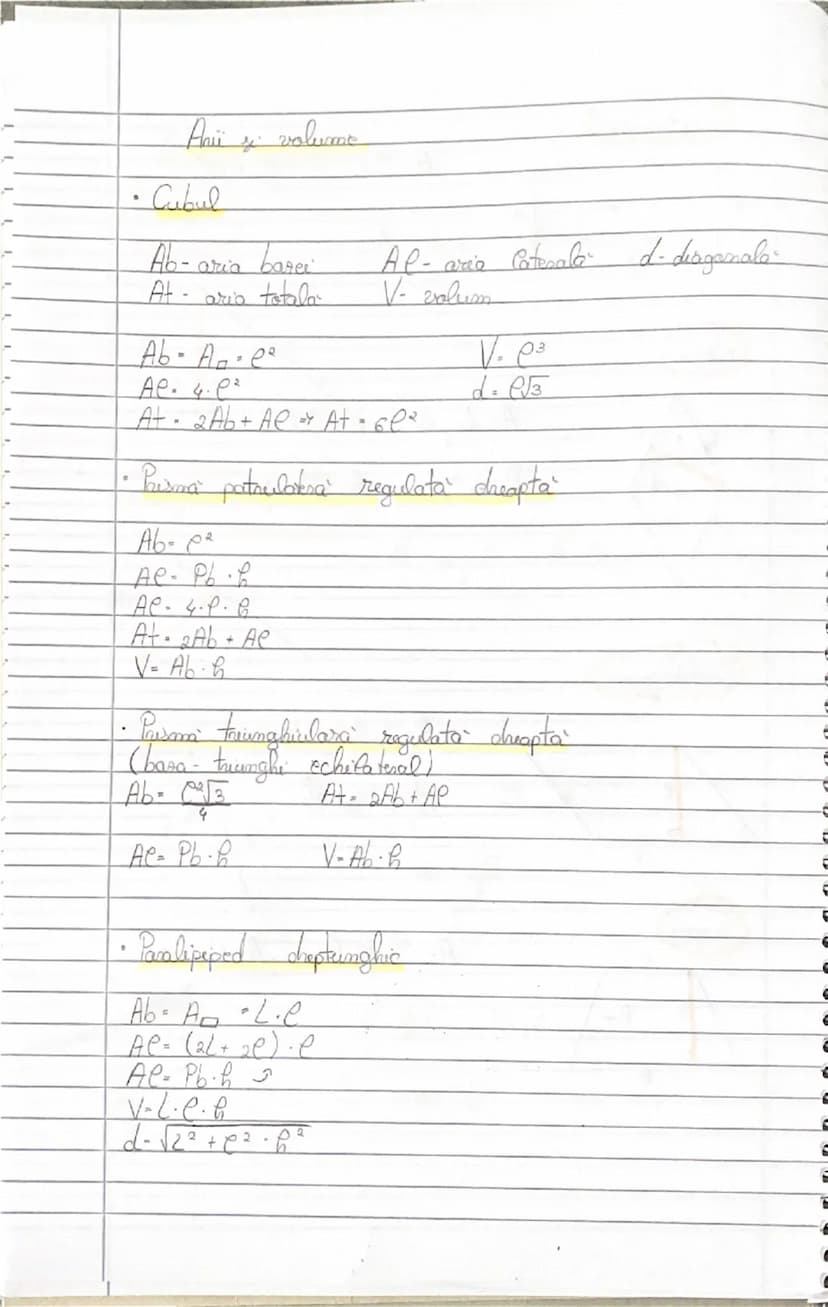 Arii și volume
• Cubul
Ab - aria bazei Al - aria laterală d - diagonala
At - aria totală V - volum
Ab = A□ = l² V = l³
Al = 4·l² d = l√3
At = 2Ab + Al => At = 6l²
• Prismă patrulateră regulată dreaptă
Ab = l²
Al = Pb · h
Al = 4·l·h
At = 2Ab + Al
V = Ab · h
• Prismă triunghiulară regulată dreaptă
(baza - triunghi echilateral)
Ab = l²√3/4 At = 2Ab + Al
Al = Pb · h V = Ab · h
• Paralipiped dreptunghic
Ab = A▭ = L·l
Al = (2L + 2l) · l
Al = Pb · h
V = L·l·h
d = √L² + l² · h²